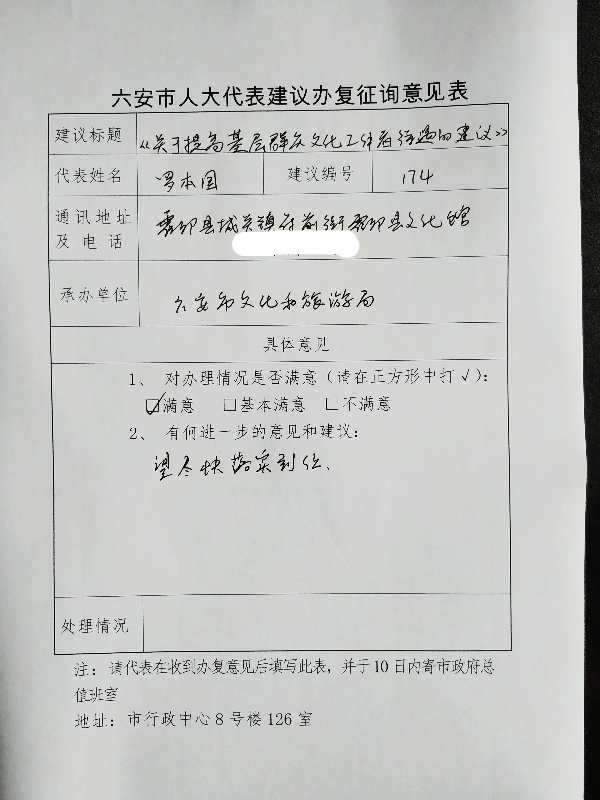 六安市人大代表建议办复征询意见表
建议标题 《关于提高基层群众文化工作者待遇的建议》
代表姓名 罗本国 建议编号 174
通讯地址 霍邱县城关镇府前街霍邱县文化馆
及电话
承办单位 六安市文化和旅游局
具体意见
1、 对办理情况是否满意（请在正方形中打√）：
☑满意 □基本满意 □不满意
2、 有何进一步的意见和建议：
望尽快落实到位、
处理情况
注：请代表在收到办复意见后填写此表，并于10日内寄市政府总
值班室
地址：市行政中心8号楼126室